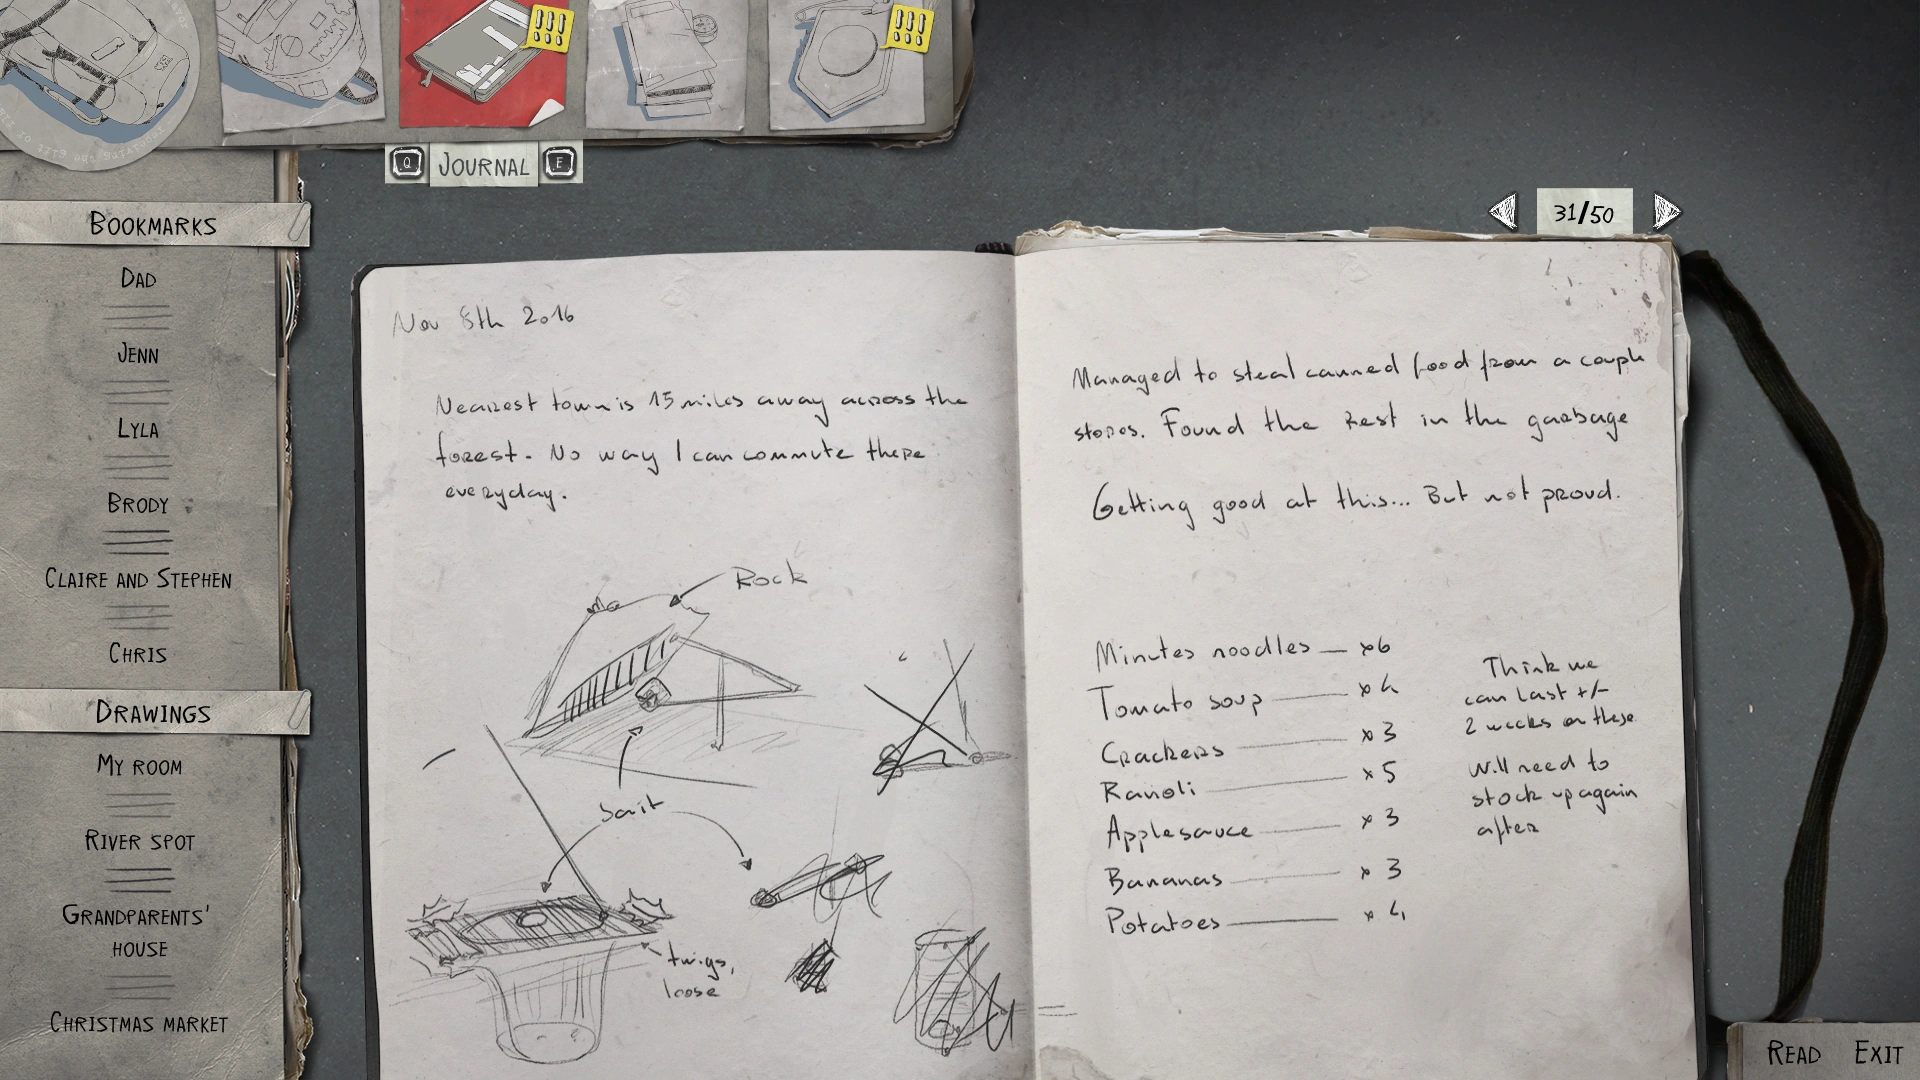 Q JOURNAL E
31/50
BOOKMARKS
DAD
JENN
LYLA
BRODY
CLAIRE AND STEPHEN
CHRIS
DRAWINGS
MY ROOM
RIVER SPOT
GRANDPARENTS'
HOUSE
CHRISTMAS MARKET
Nov 8th 2016
Nearest town is 15 miles away across the
forest. No way I can commute there
everyday.
Rock
bait
twigs,
loose
Managed to steal canned food from a couple
stores. Found the rest in the garbage
Getting good at this... But not proud.
Minutes noodles — x6
Tomato soup — x4
Crackers — x3
Ravioli — x5
Applesauce — x3
Bananas — x3
Potatoes — x4
Think we
can last +/-
2 weeks on these
Will need to
stock up again
after
READ EXIT